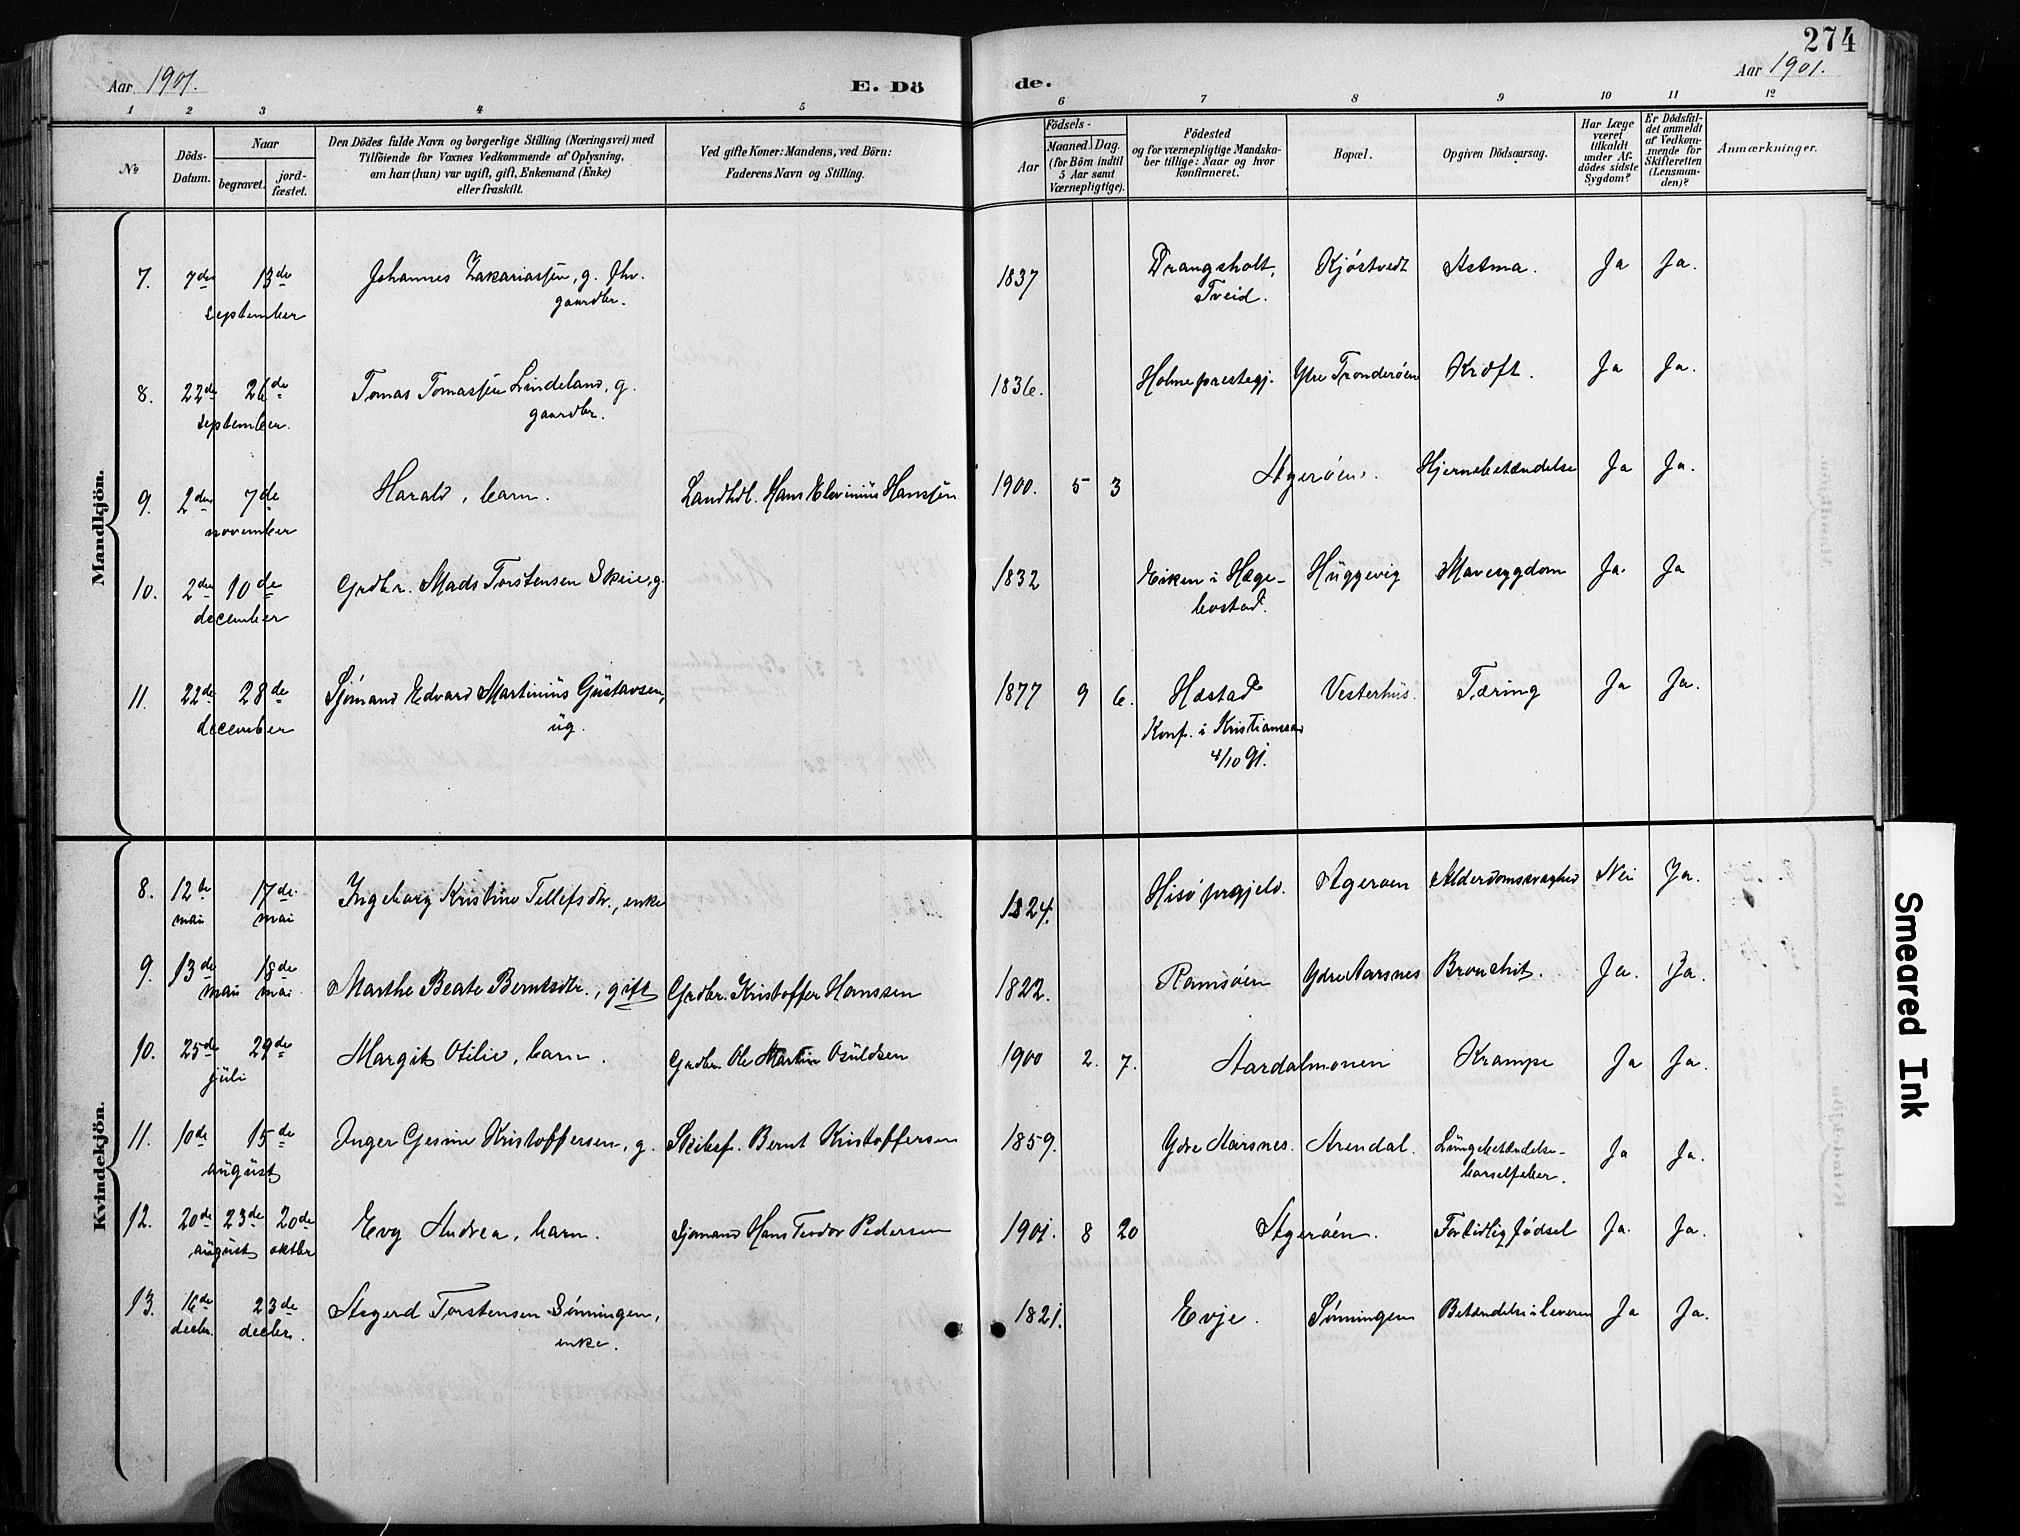 274
Aar 1901. E. Dö
de. Aar 1901.
1 2 3 4 5 6 7 8 9 10 11 12
No
Döds-Datum.
Naar
begravet.
jord-fæstet.
Den Dödes fulde Navn og borgerlige Stilling (Næringsvei) med
Tilföiende for Voxnes Vedkommende af Oplysning,
om han (hun) var ugift, gift, Enkemand (Enke)
eller fraskilt.
Ved gifte Koner: Mandens, ved Börn:
Faderens Navn og Stilling.
Födsels-
Aar
Maaned. Dag.
(for Börn indtil
5 Aar samt
Værnepligtige).
Födested
og for værnepligtige Mandska-
ber tillige: Naar og hvor
konfirmeret.
Bopæl.
Opgiven Dödsaarsag.
Har Læge
været
tilkaldt
under Af-
dödes sidste
Sygdom?
Er Dödsfal-
det anmeldt
af Vedkom-
mende for
Skifteretten
(Lensman-
den)?
Anmærkninger.
Mandkjön.
7. 7de 13de Johannes Zakariassen, g. fhv. 1837 Drangsholt, Kjöstvedt Astma. Ja Ja.
september gaardbr. Tveid.
8. 22de 26de Tomas Tomassen Lindeland, g. 1836. Holme prestegj. Ytre Tronderöen Kræft. Ja Ja.
september. gaardbr.
9. 2den 7de Harald, barn. Landhdl. Hans Elevinius Hanssen 1900. 5 3 Ageröen. Hjernebetændelse Ja Ja.
november
10. 2den 10de Grdbr. Mads Torstensen Skeie, g. 1832 Eiken i Hæge- Huggevig Mavesygdom Ja. Ja
december bostad.
11. 22de 28de Sjömand Edvard Martinius Gustavsen, 1877 9 6. Hæstad Vesterhus. Tæring Ja Ja.
december ug. Konf. i Kristianssand
4/10 91.
Kvindekjön.
8. 12te 17de Ingeborg Kristine Tellefsdtr., enke 1824. Hisö prgjeld. Ageröen Alderdomssvaghed Nei Ja.
mai mai
9. 13de 18de Marthe Beate Berntsdtr., gift Grdbr. Kristoffer Hanssen 1822. Ramsöen Ydre Aarsnes Bronchit. Ja. Ja.
mai mai
10. 25de 29de Margit Otilie, barn. Grdbr. Ole Martin Osuldsen 1900 2. 7. Aardalmonen Krampe Ja Ja.
juli
11. 10de 15de Inger Gesine Kristoffersen, g. Skibsf. Bernt Kristoffersen 1859. Ydre Aarsnes. Arendal. Lungebetændelse- Ja Ja.
august barselfeber.
12. 20de 23de 20de Evy Andrea, barn. Sjömand Hans Teodor Pedersen 1901. 8 20 Ageröen. Fortidlig födsel Ja. Ja.
august oktbr
13. 16de 23de Asgerd Torstensen Sönningen, 1821. Evje. Sönningen Betændelse i leveren Ja Ja.
decbr. decbr. enke.
Smeared Ink